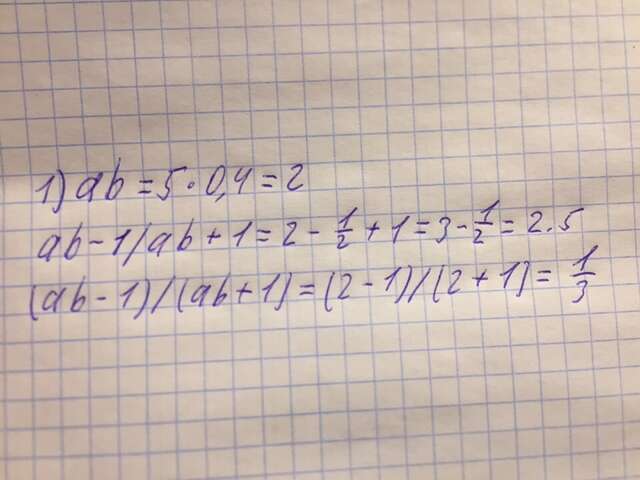 1) ab = 5 · 0,4 = 2
ab - 1/ab + 1 = 2 - 1/2 + 1 = 3 - 1/2 = 2.5
(ab - 1)/(ab + 1) = (2 - 1)/(2 + 1) = 1/3